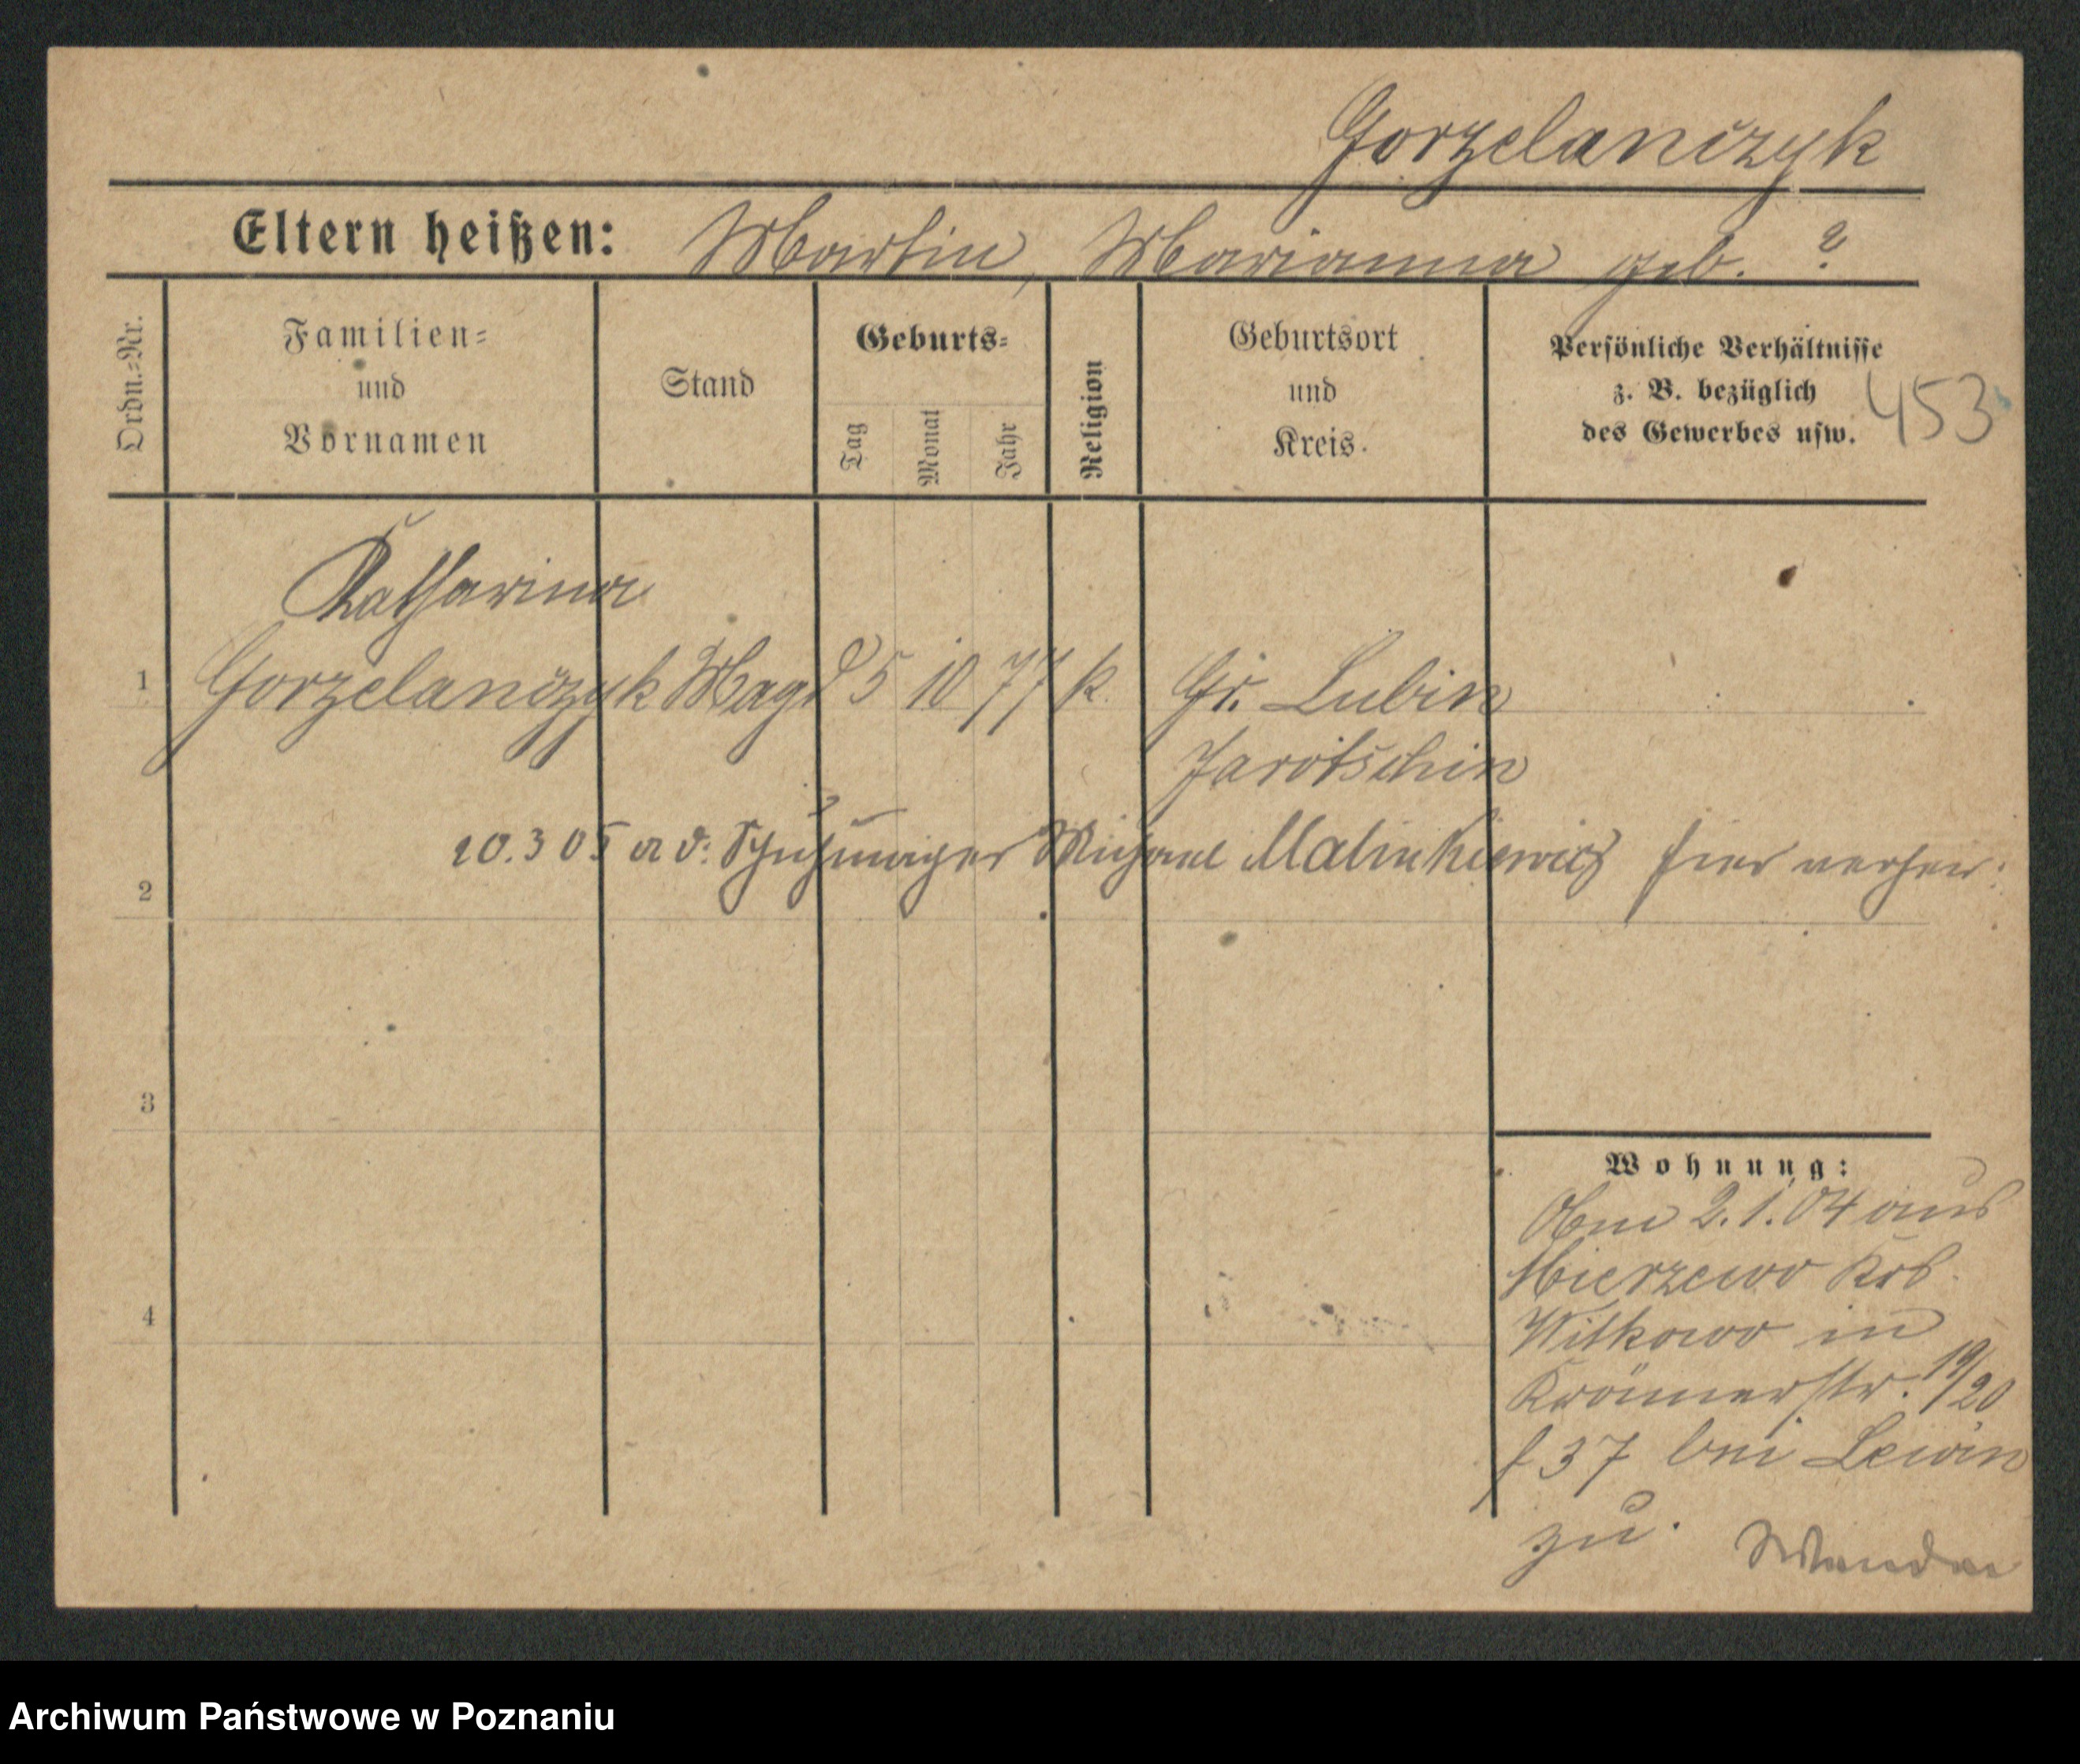 Gorzelańczyk
Eltern heißen: Martin, Marianna geb. ?
Ordn.-Nr.
Familien-
und
Vornamen
Stand
Geburts-
Tag
Monat
Jahr
Religion
Geburtsort
und
Kreis.
Persönliche Verhältnisse
z. B. bezüglich
des Gewerbes usw.
453
Katharina
1 Gorzelańczyk Magd 5 10 77 k. Gr. Lubin
Jarotschin
10.3 05 a d: Schuhmacher Michael Malinkiewicz hier verheir:
2
3
4
Wohnung:
2.1.04 aus
Mierzewo Krs.
Witkowo in
19/20
37 bei Lewin
zu.